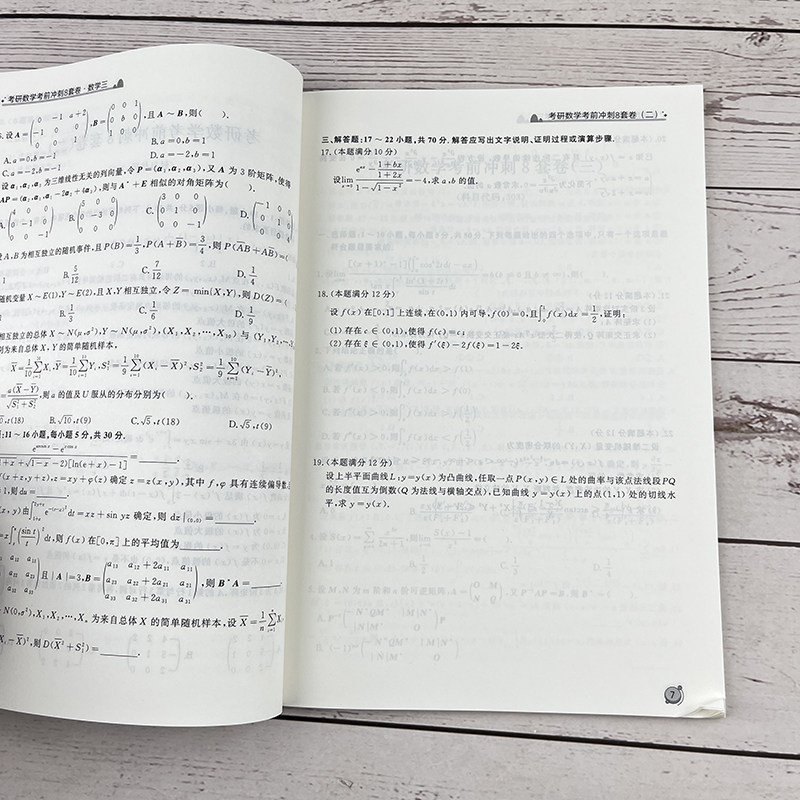 考研数学考前冲刺8套卷·数学三
设A=(0 -1 a+2 -1 0 0 0 0),B=(0 0 1 0 b 0 1 0 0),且A~B,则( ).
A.a=0,b=-1 B.a=0,b=1
C.a=-2,b=-1 D.a=-2,b=1
设α₁,α₂,α₃为三维线性无关的列向量,令P=(α₁,α₂,α₃),又A为3阶矩阵,使得
AP=(α₁,α₃,α₁-2α₂+α₃),则与A*+E相似的对角矩阵为( ).
A. B. C. D.
设A,B为相互独立的随机事件,且P(B)=1/3,P(A+B̅)=3/4,则P(A̅B+AB̅)=(
B.5/12 C.7/12 D.1/4
随机变量X~E(1),Y~E(2),且X,Y相互独立,令Z=min{X,Y},则D(Z)=(
B.1/3 C.1/6 D.1/9
相互独立的总体X~N(μ,σ²),Y~N(μ,σ²),(X₁,X₂,…,X₁₀)与(Y₁,Y₂,…
别为来自总体X,Y的简单随机样本,
X̅=1/10∑Xᵢ,Y̅=1/10∑Yᵢ,S₁²=1/9∑(Xᵢ-X̅)²,S₂²=1/9∑(Yᵢ-Y̅)²,
=a(X̅-Y̅)/√(S₁²+S₂²),则a的值及U服从的分布分别为( ).
,t(18) B.√10,t(9) C.√5,t(18) D.√5,t(9)
:11~16小题,每小题5分,共30分.
=______.
(x+z,y+z),z=xy+φ(z)确定z=z(x,y),其中f,φ具有连续偏导数,
1,则du=______.
(x,y)由 dt=xz+sin yz确定,则dz|(0,0)=______.
=x∫(sin t/t)²dt,则f(x)在[0,π]上的平均值为______.
且|A|=3,B=(a₁₃ a₁₂+2a₁₁ a₁₁ a₂₃ a₂₂+2a₂₁ a₂₁ a₃₃ a₃₂+2a₃₁ a₃₁),则B*A=______.
~N(0,σ²),X₁,X₂,…,Xₙ为来自总体X的简单随机样本,设X̅=1/n∑X
Xᵢ-X̅)²,则D(X̅²+S²)=______.
考研数学考前冲刺8套卷(二)
三、解答题:17~22小题,共70分.解答应写出文字说明、证明过程或演算步骤.
17.(本题满分10分)
设lim(x→0) (e^(ax)-(1+bx)/(1+2x))/(1-√(1-x²))=-4,求a,b的值.
18.(本题满分12分)
设f(x)在[0,1]上连续,在(0,1)内可导,f(0)=0,且∫₀¹f(x)dx=1/2,证明:
(1)存在c∈(0,1),使得f(c)=c;
(2)存在ξ∈(0,1),使得f′(ξ)-2f(ξ)=1-2ξ.
19.(本题满分12分)
设上半平面曲线L:y=y(x)为凸曲线,任取一点P(x,y)∈L处的曲率与该点法线段PQ
的长度值互为倒数(Q为法线与横轴交点),已知曲线y=y(x)上的点(1,1)处的切线水
平,求y=y(x).
7